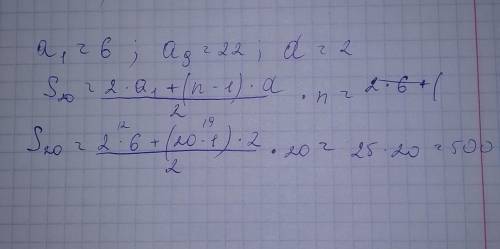 a₁ = 6 ; a₉ = 22 ; d = 2
S₂₀ = (2·a₁ + (n - 1)·d)/2 · n = 2·6 + (
S₂₀ = (2·6 + (20-1)·2)/2 · 20 = 25·20 = 500
12 19